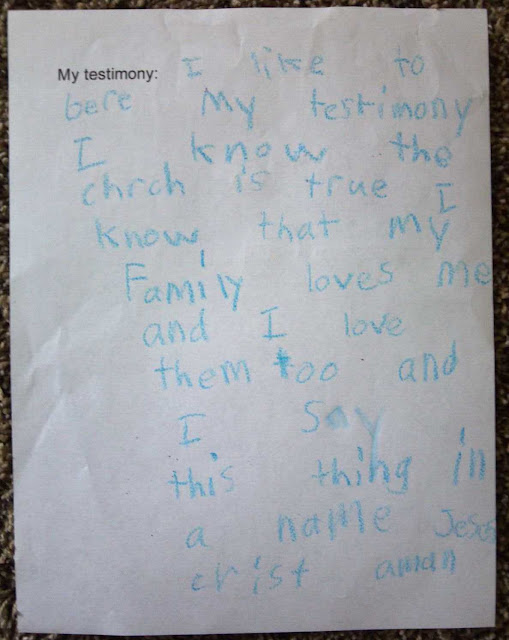 My testimony: I like to
bere My testimony
I know the
chrch is true I
know that my
Family loves me
and I love
them too and
I Say
this thing in
a name Jesus
crist aman